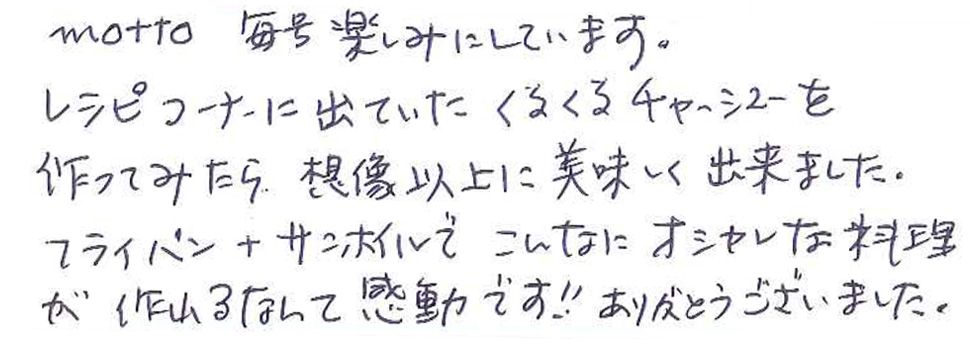 motto 毎号楽しみにしています。
レシピコーナーに出ていたくるくるチャーシューを
作ってみたら 想像以上に美味しく出来ました。
フライパン + サンホイルで こんなにオシャレな料理
が作れるなんて感動です!! ありがとうございました。